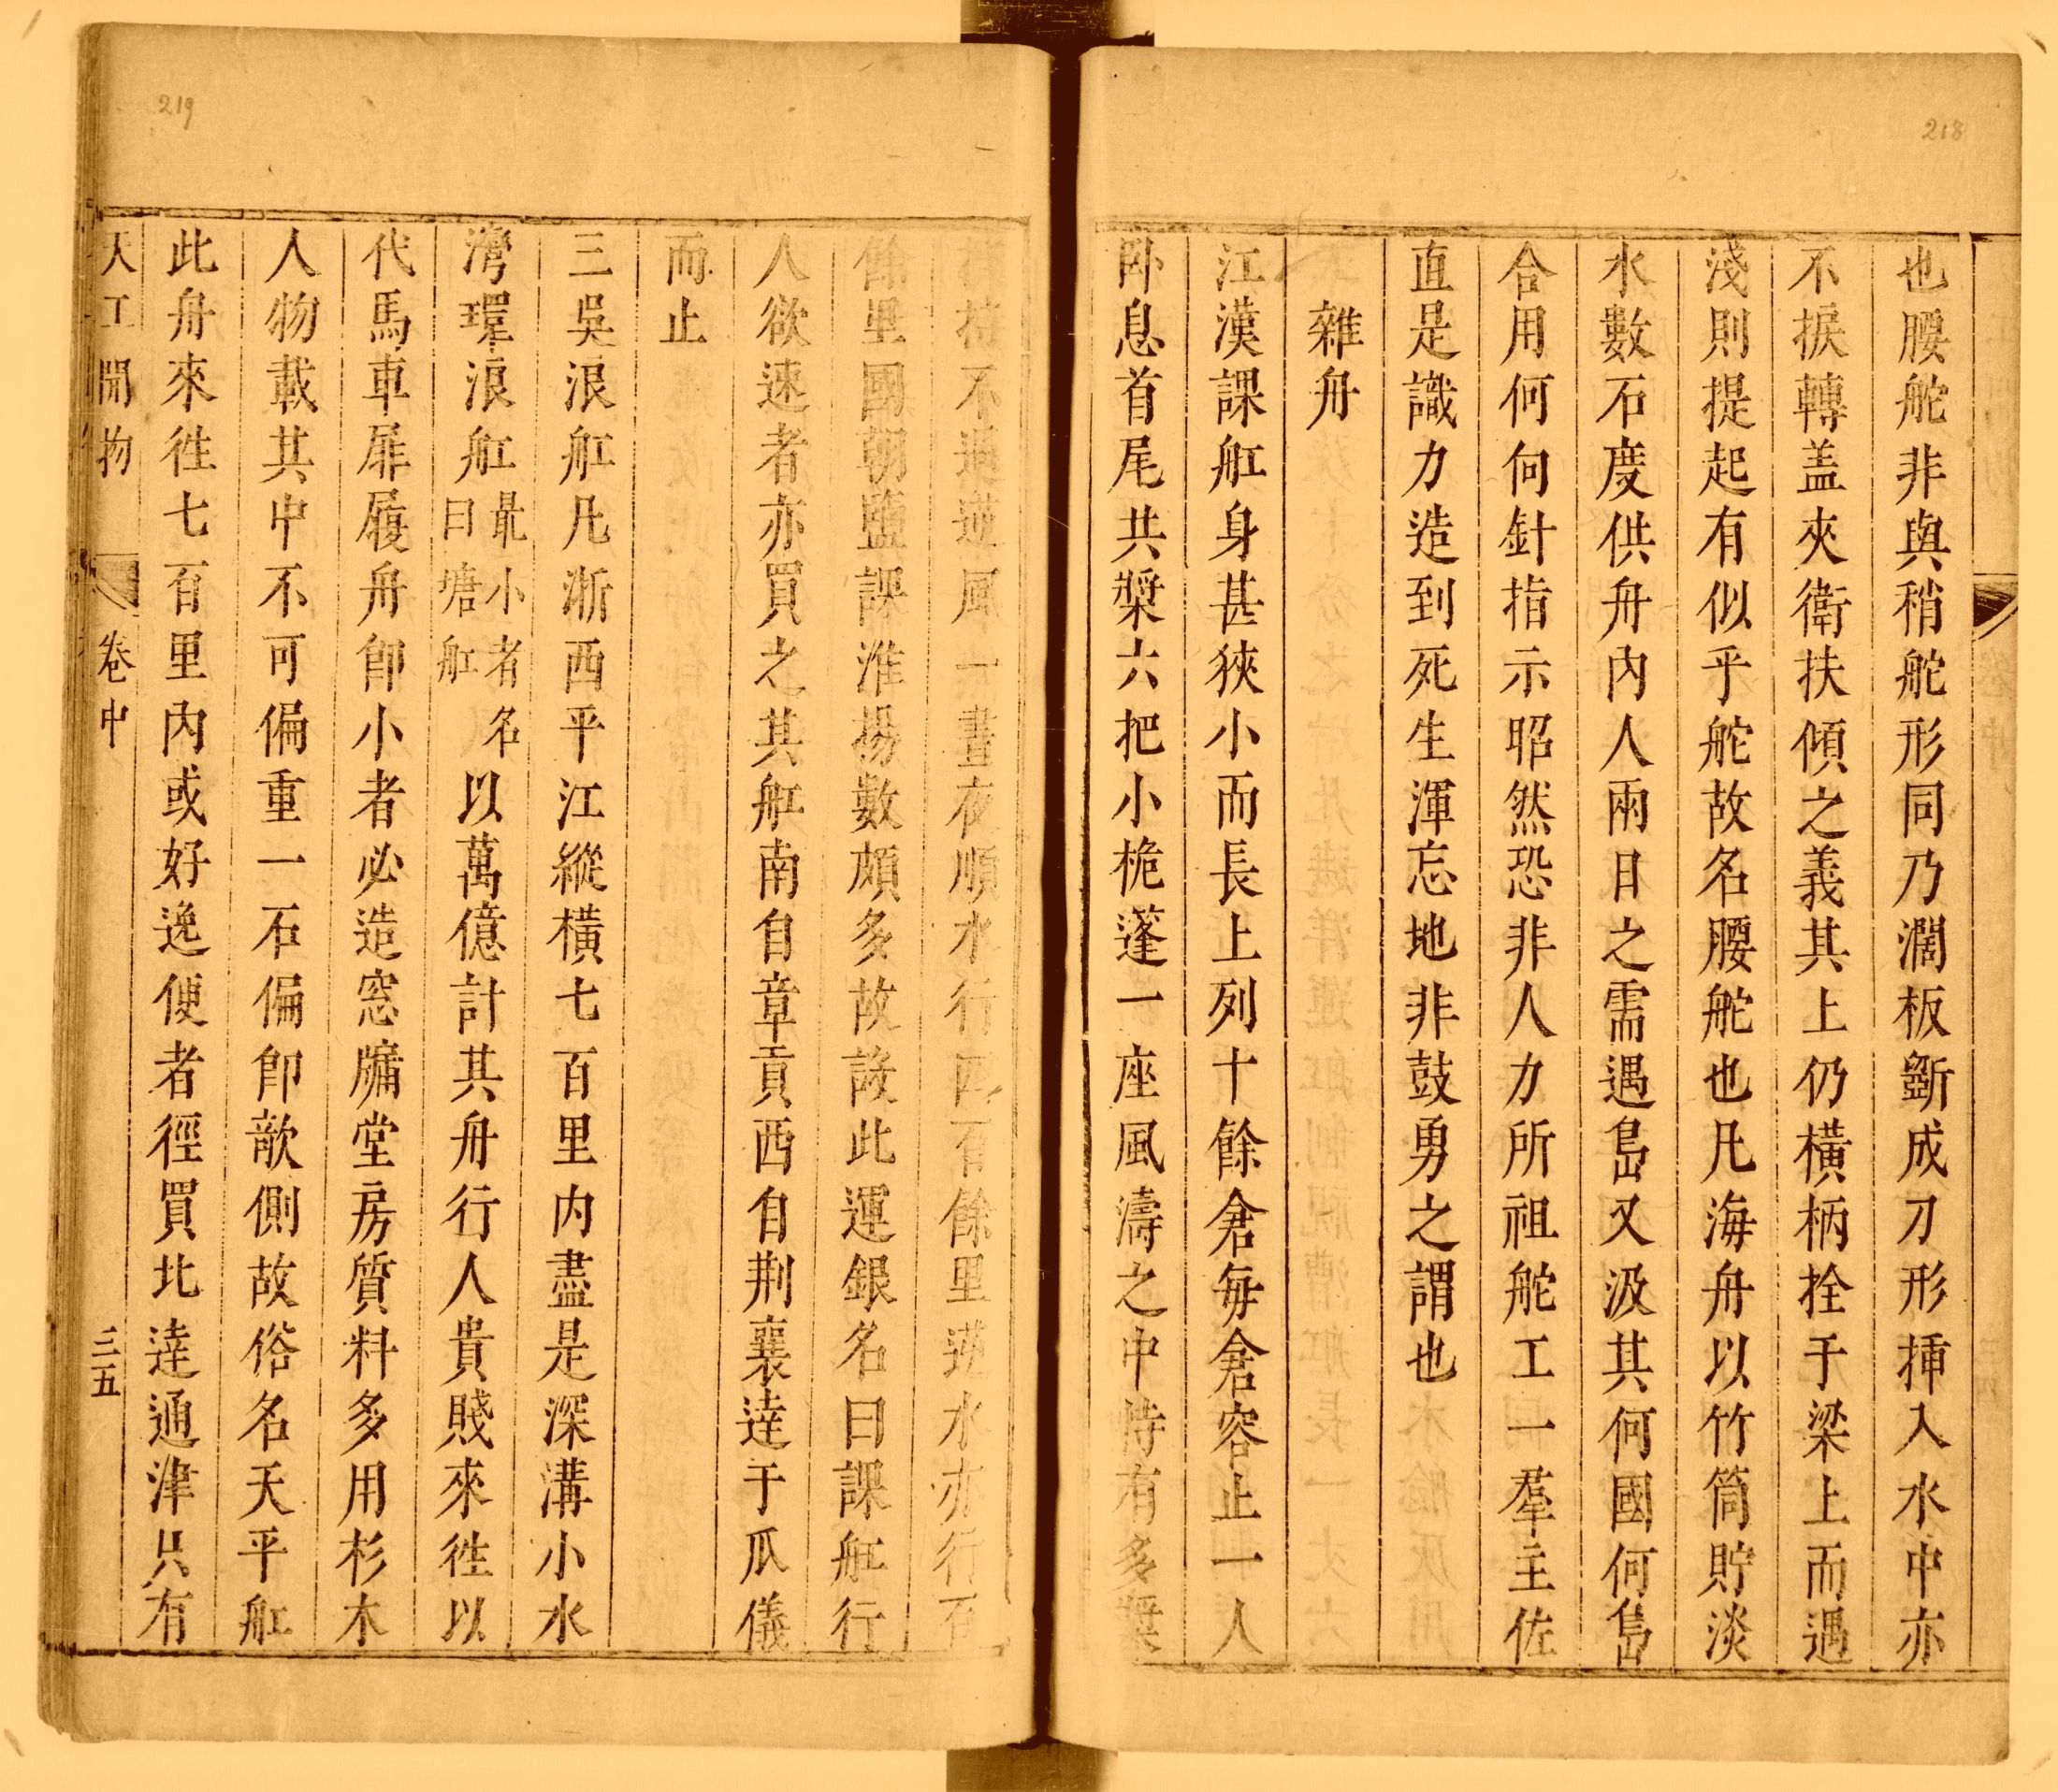 218
也腰舵非與稍舵形同乃濶板斵成刀形揷入水中亦
不捩轉盖夾衛扶傾之義其上仍橫柄拴于梁上而遇
淺則提起有似乎舵故名腰舵也凡海舟以竹筒貯淡
水數石度供舟內人兩日之需遇島又汲其何國何島
合用何向針指示昭然恐非人力所祖舵工一羣主佐
直是識力造到死生渾忘地非鼓勇之謂也
雜舟
江漢課舡身甚狹小而長上列十餘倉每倉容止一人
卧息首尾共槳六把小桅蓬一座風濤之中恃有多槳
219
挾持不遇逆風一晝夜順水行四百餘里逆水亦行百
餘里國朝鹽課淮揚數頗多故設此運銀名曰課舡行
人欲速者亦買之其舡南自章貢西自荆襄逹于瓜儀
而止
三吳浪舡凡浙西平江縱橫七百里內盡是深溝小水
灣環浪舡最小者名曰塘舡以萬億計其舟行人貴賤來徃以
代馬車屝履舟卽小者必造窓牖堂房質料多用杉木
人物載其中不可偏重一石偏卽欹側故俗名天平舡
此舟來徃七百里內或好逸便者徑買北逹通津只有
天工開物 卷中 三五